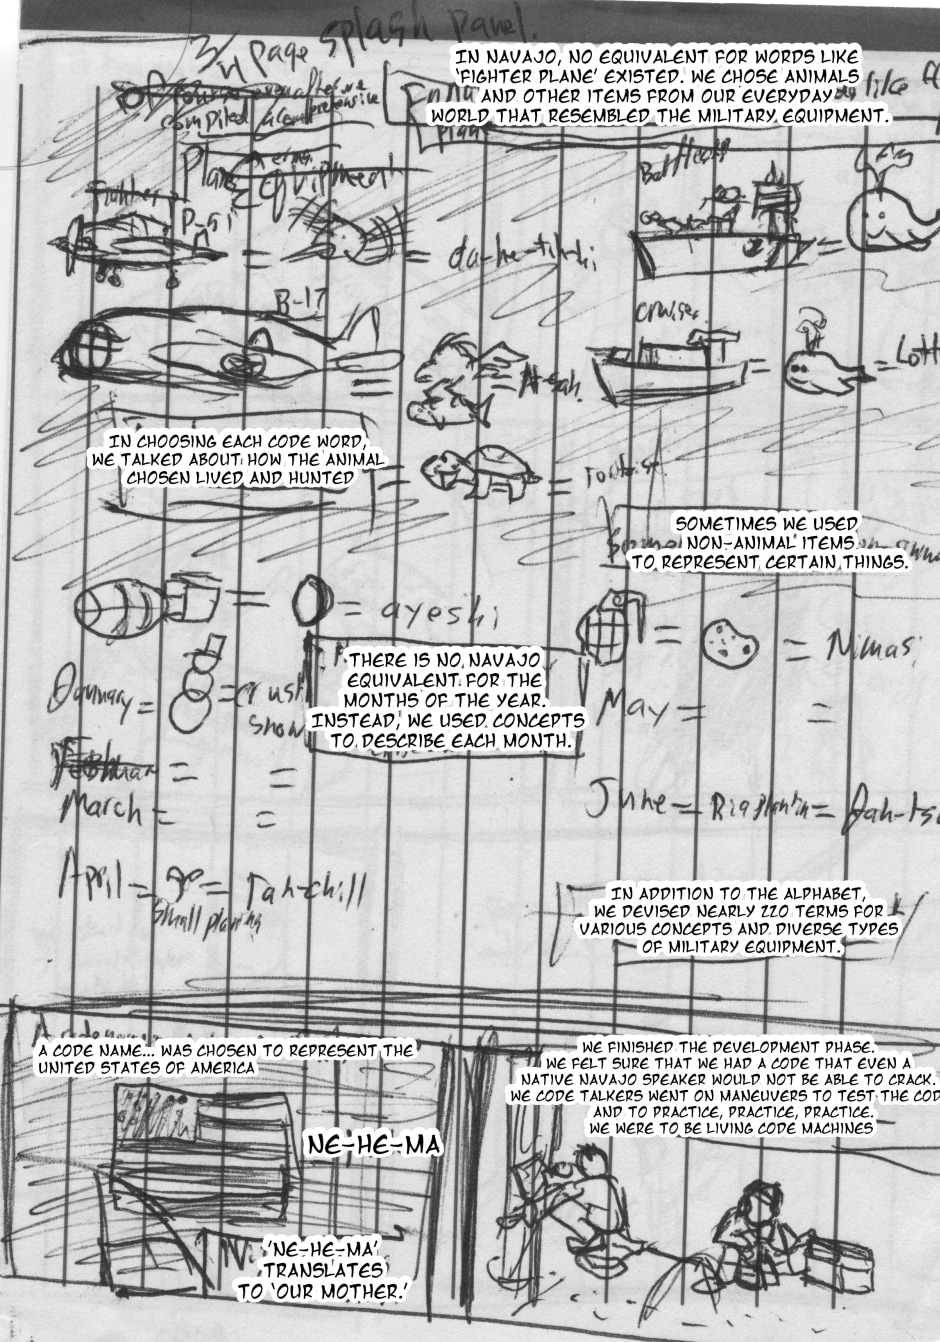 3/4 page splash panel.
IN NAVAJO, NO EQUIVALENT FOR WORDS LIKE
'FIGHTER PLANE' EXISTED. WE CHOSE ANIMALS
AND OTHER ITEMS FROM OUR EVERYDAY
WORLD THAT RESEMBLED THE MILITARY EQUIPMENT.
like
Plane
Equipment
Fighter
P-51
= = da-he-tih-hi
Battleship
=
B-17
= = A-sah.
cruiser
= =
IN CHOOSING EACH CODE WORD,
WE TALKED ABOUT HOW THE ANIMAL
CHOSEN LIVED AND HUNTED
= =
SOMETIMES WE USED
NON-ANIMAL ITEMS
TO REPRESENT CERTAIN THINGS.
= = ayeshi
= = Nimasi
THERE IS NO NAVAJO
EQUIVALENT FOR THE
MONTHS OF THE YEAR.
INSTEAD, WE USED CONCEPTS
TO DESCRIBE EACH MONTH.
January = = crust
snow
May = =
= =
March = =
June = Big Plantin =
April = = Tah-chill
small planting
IN ADDITION TO THE ALPHABET,
WE DEVISED NEARLY 220 TERMS FOR
VARIOUS CONCEPTS AND DIVERSE TYPES
OF MILITARY EQUIPMENT.
A CODE NAME... WAS CHOSEN TO REPRESENT THE
UNITED STATES OF AMERICA
NE-HE-MA
'NE-HE-MA'
TRANSLATES
TO 'OUR MOTHER.'
WE FINISHED THE DEVELOPMENT PHASE.
WE FELT SURE THAT WE HAD A CODE THAT EVEN A
NATIVE NAVAJO SPEAKER WOULD NOT BE ABLE TO CRACK.
WE CODE TALKERS WENT ON MANEUVERS TO TEST THE COD
AND TO PRACTICE, PRACTICE, PRACTICE.
WE WERE TO BE LIVING CODE MACHINES